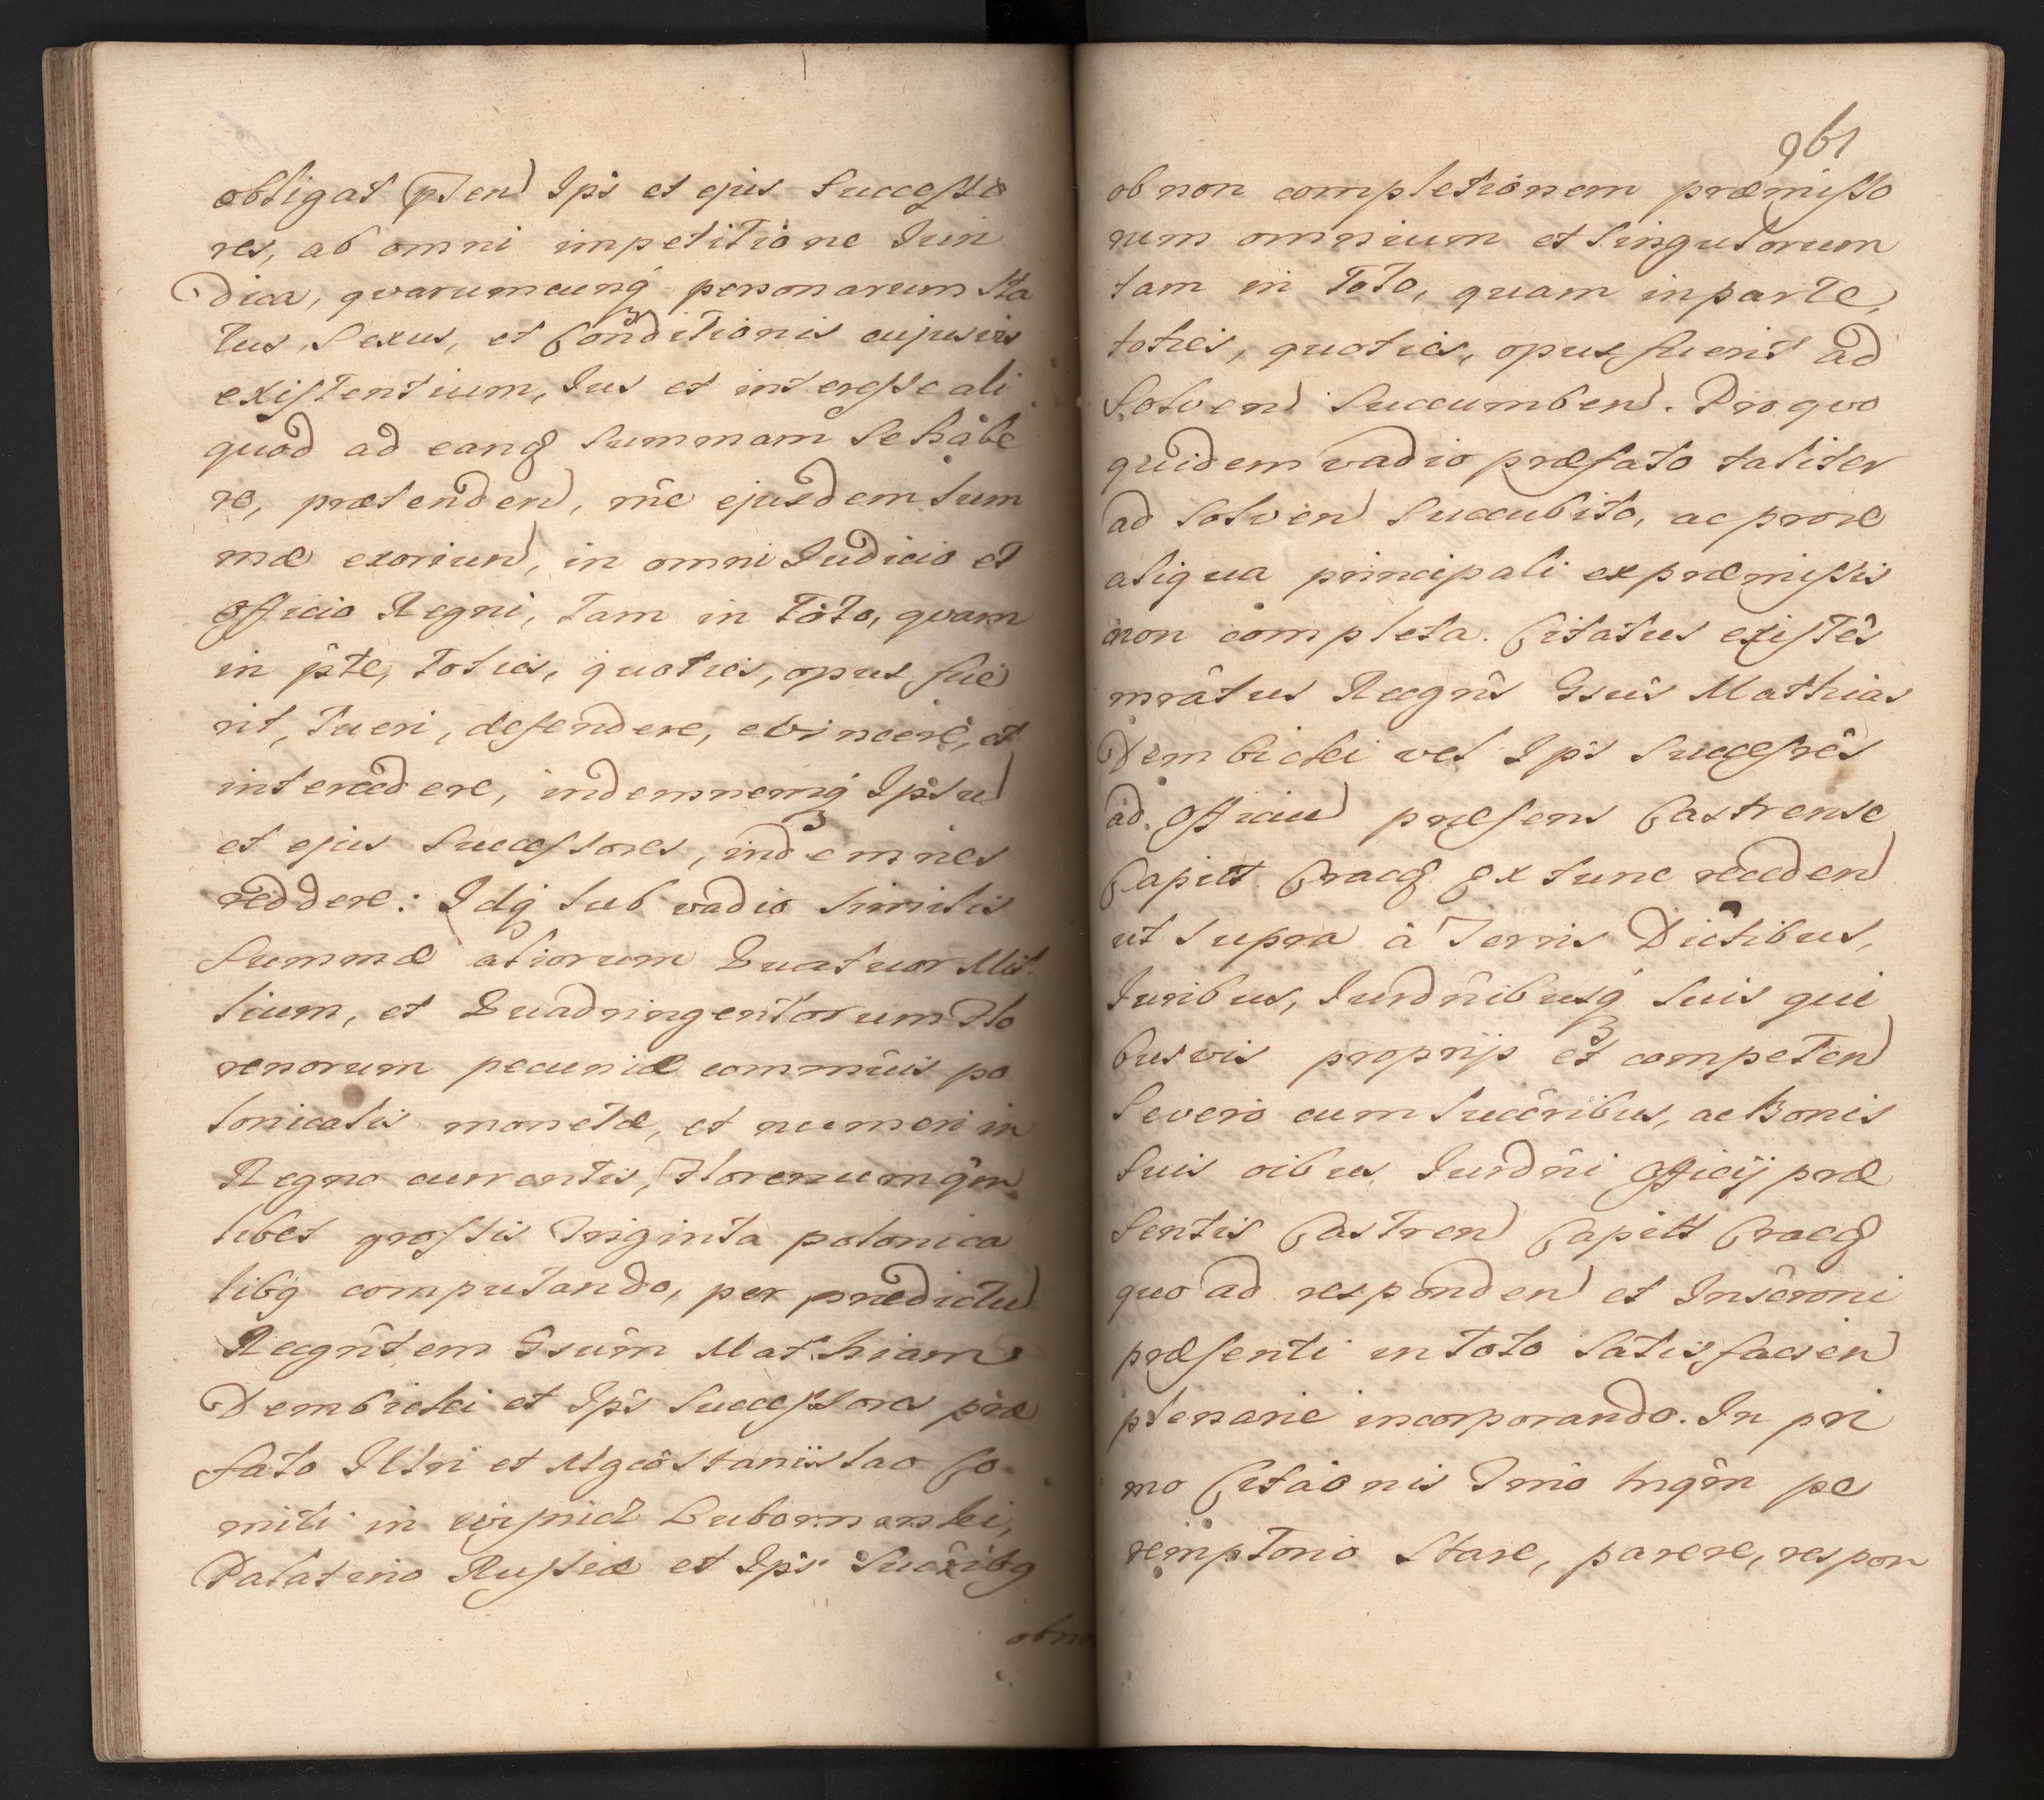 obligat pten Ips et ejus Successo
res, ab omni impetitione Juri
dica, qvarumcunq personarum Sta
tus, Sexus, et Conditionis cujusvis
existentium, Jus et interesse ali
quod ad eandq Summam Se habe
re, prætenden, rñe ejusdem Sum
mæ exoriun, in omni Judicio et
Officio Regni, tam in toto, qvam
in pte, toties, quoties, opus fue
rit, tueri, defendere, evincere, et
intercedere, indemnemq Ipsu
et ejus Successores, indemnes
reddere: Idq Sub vadio Similis
Summæ aliorum Quatuor Mil
lium, et Quadringentorum Flo
renorum pecuniæ commũis po
lonicalis monetæ, et numeri in
Regno currentis, Florenum qm
libet grossis Triginta polonica
libq computando, per prædictu
Recgñtem Gsûm Mathiam
Dembicki et Ips Successores præ
fato Illri et Mgco Stanislao Co
miti in Wisnicz Lubomirski,
Palatino Russiæ et Ips Sucribq
obno
961
ob non completionem præmisso
rum omnium et Singulorum
tam in Toto, quam in parte,
toties, quoties, opus fuerit ad
Solven Succumben. Pro qvo
quidem vadio præfato taliter
ad Solven Succubito, ac pro re
aliqua principali ex præmissis
non completa. Citatus existês
mrâtus Recgñs Gsûs Mathias
Dembicki vel Ips Succesrês
ad Officiu præsens Castrense
Capitt Cracq ex tunc receden
ut Supra à Terris Dictibus,
Juribus, Jurdñibusq Suis qui
busvis proprijs et competen
Severo cum Succribus, ac Bonis
Suis oibus Jurdñi Officij præ
Sentis Castren Capitt Cracq
quo ad responden et Inscroni
præsenti in toto Satisfacien
plenarie incorporando. In pri
mo Citaonis Tnio tnqm pe
remptorio Stare, parere, respon